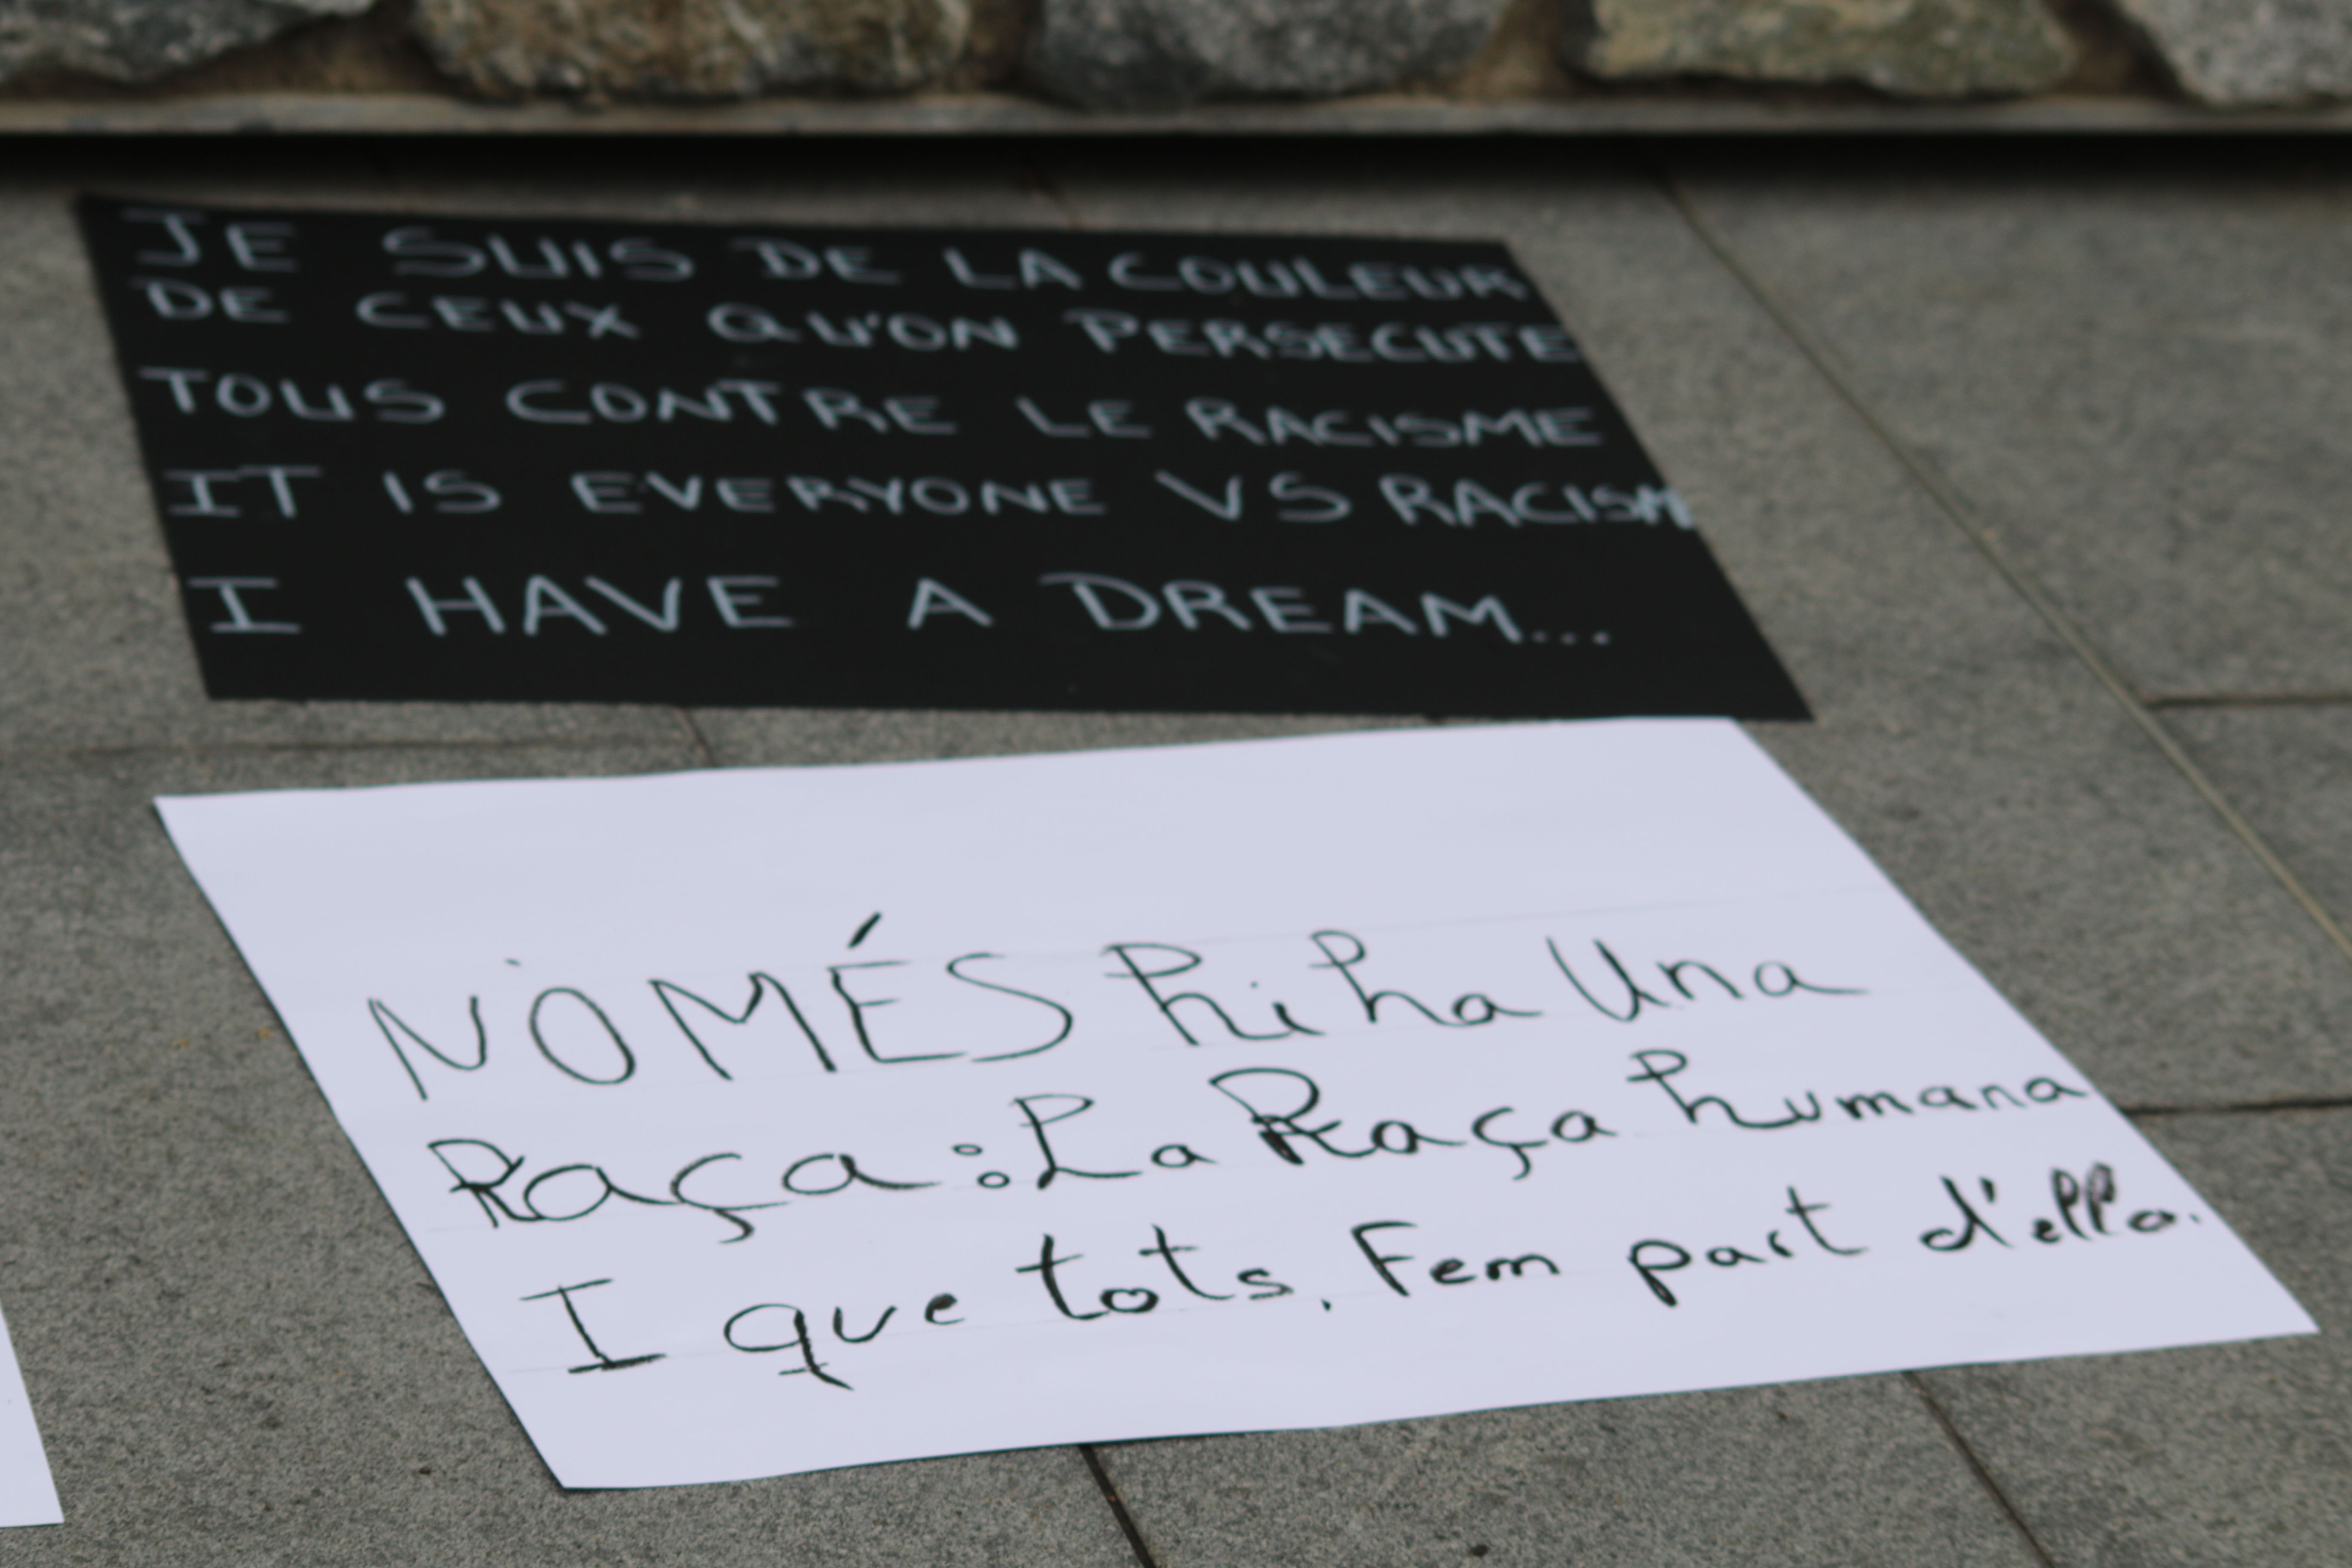 JE SUIS DE LA COULEUR
DE CEUX QU'ON PERSECUTE
TOUS CONTRE LE RACISME
IT IS EVERYONE VS RACISM
I HAVE A DREAM...
NOMÉS hi ha Una
Raça: La Raça humana
I que tots, Fem part d'ella.